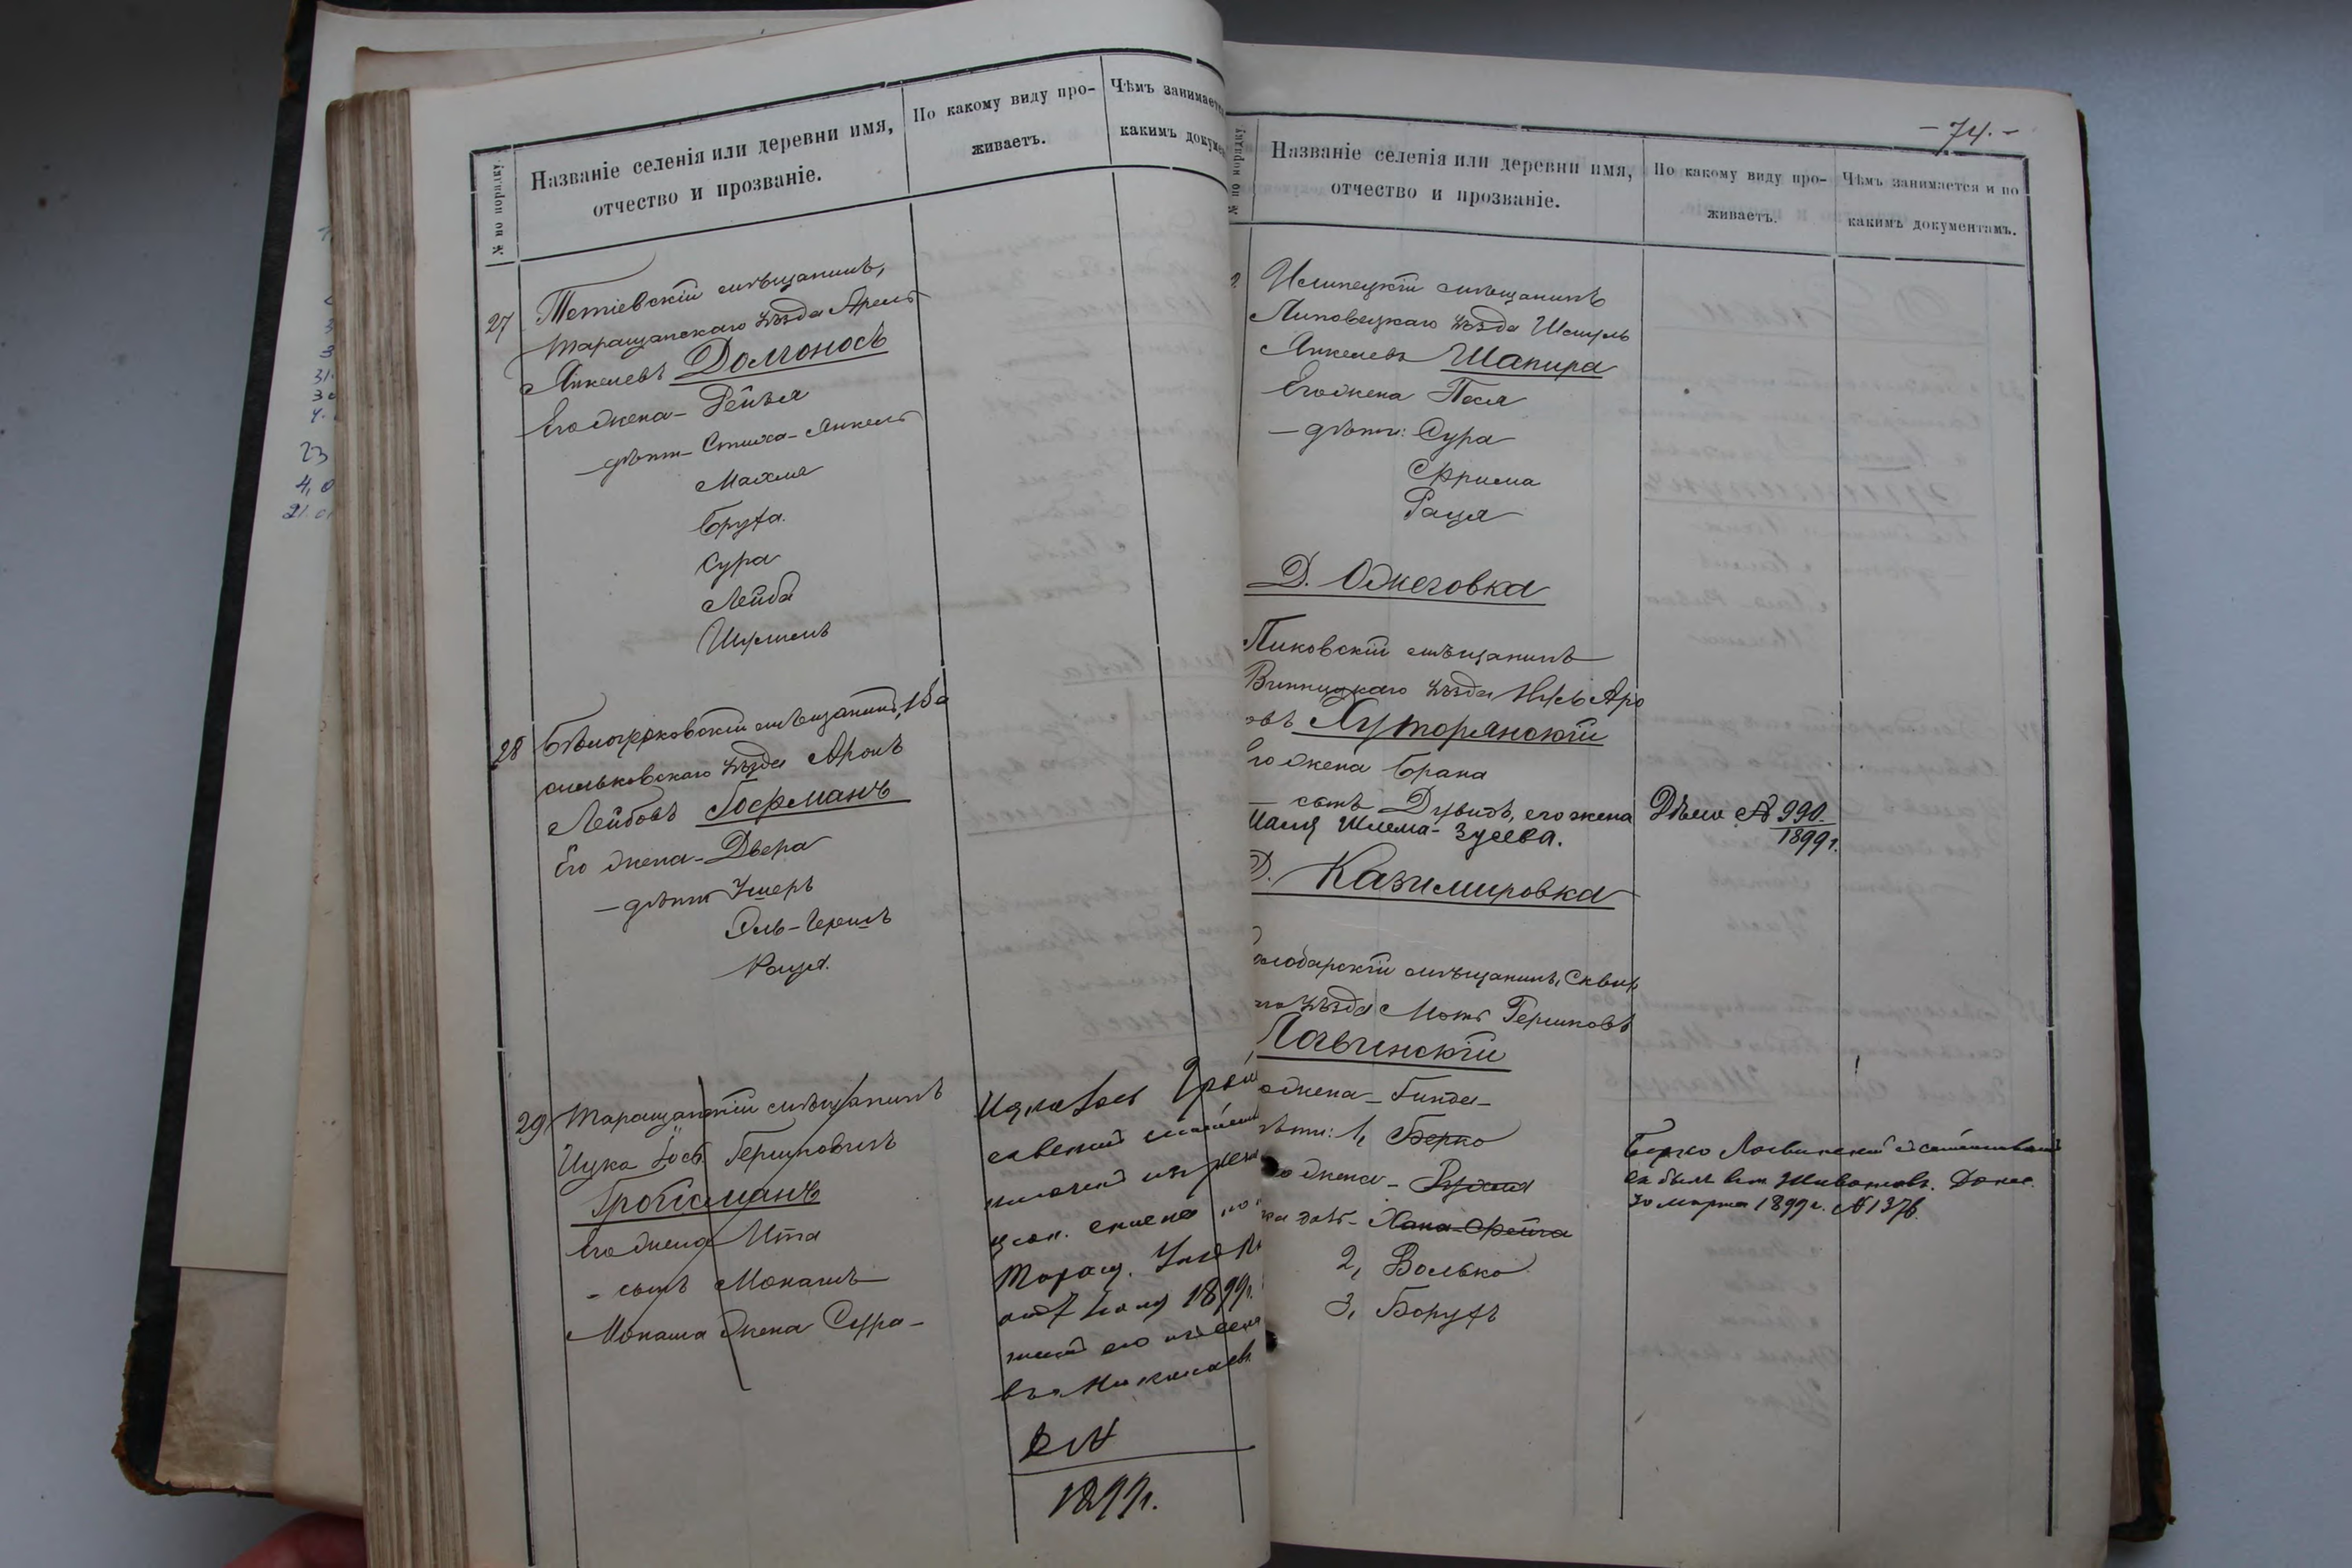 № по порядку.
Названіе селенія или деревни имя,
отчество и прозваніе.
По какому виду про-
живаетъ.
Чѣмъ занимается
какимъ докумен
27
Тетіевскій мѣщанинъ,
Таращанскаго уѣзда Арель
Янкелевъ Долгоносъ
Его жена - Рейзя
- дѣти - Янкель
Махля
Бруха.
Сура
Лейба
Шулимъ
28
Бѣлоцерковскій мѣщанинъ, Ва
сильковскаго уѣзда Аронъ
Лейбовъ Гофманъ
Его жена - Двера
- дѣти Ушеръ
Эль-Гершъ
Раця.
29
Таращанскій мѣщанинъ
Ицко Іос. Гершковичъ
Гройсманъ
Его жена Ита
- сынъ Монашъ
Монаша жена Сура -
Ицко Іось
исключенъ изъ
списка
Таращ.
1899г.
въ Николаевъ
1899г.
- 74. -
№ по порядку
Названіе селенія или деревни имя,
отчество и прозваніе.
По какому виду про-
живаетъ.
Чѣмъ занимается и по
какимъ документамъ.
Илинецкій мѣщанинъ
Липовецкаго уѣзда Шмуль
Янкелевъ Шапира
Его жена Песя
- дѣти: Сура
Фрима
Рация
Д. Ожеговка
Пиковскій мѣщанинъ
Винницкаго уѣзда Нусь Аро
овъ Хуторянскій
Его жена Брана
- сынъ Дувидъ, его жена
Шлема-Зусева.
Дѣло № 990.
1899 г.
Д. Казимировка
олодарскій мѣщанинъ, Сквир
го уѣзда Мотъ Гершковъ
Лавинскій
о жена - Гинда -
ѣти: 1, Берко
го жена - Рухля
дочь - Хана-Фейга
2, Волько
3, Борухъ
Берко Лавинскій
въ Животовъ. Донес.
30 марта 1899 г. № 1376.